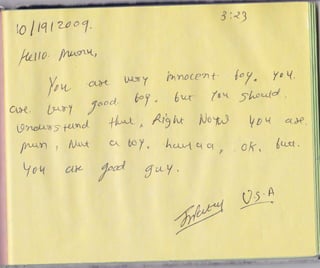 10/19/2009.
3:23
Hello. Munu,
You are very innocent boy. You.
are very good boy. but You should.
Understand that, Right Now you are.
man, Not a boy. hahaaa, OK. but.
You are good guy.
U.S.A